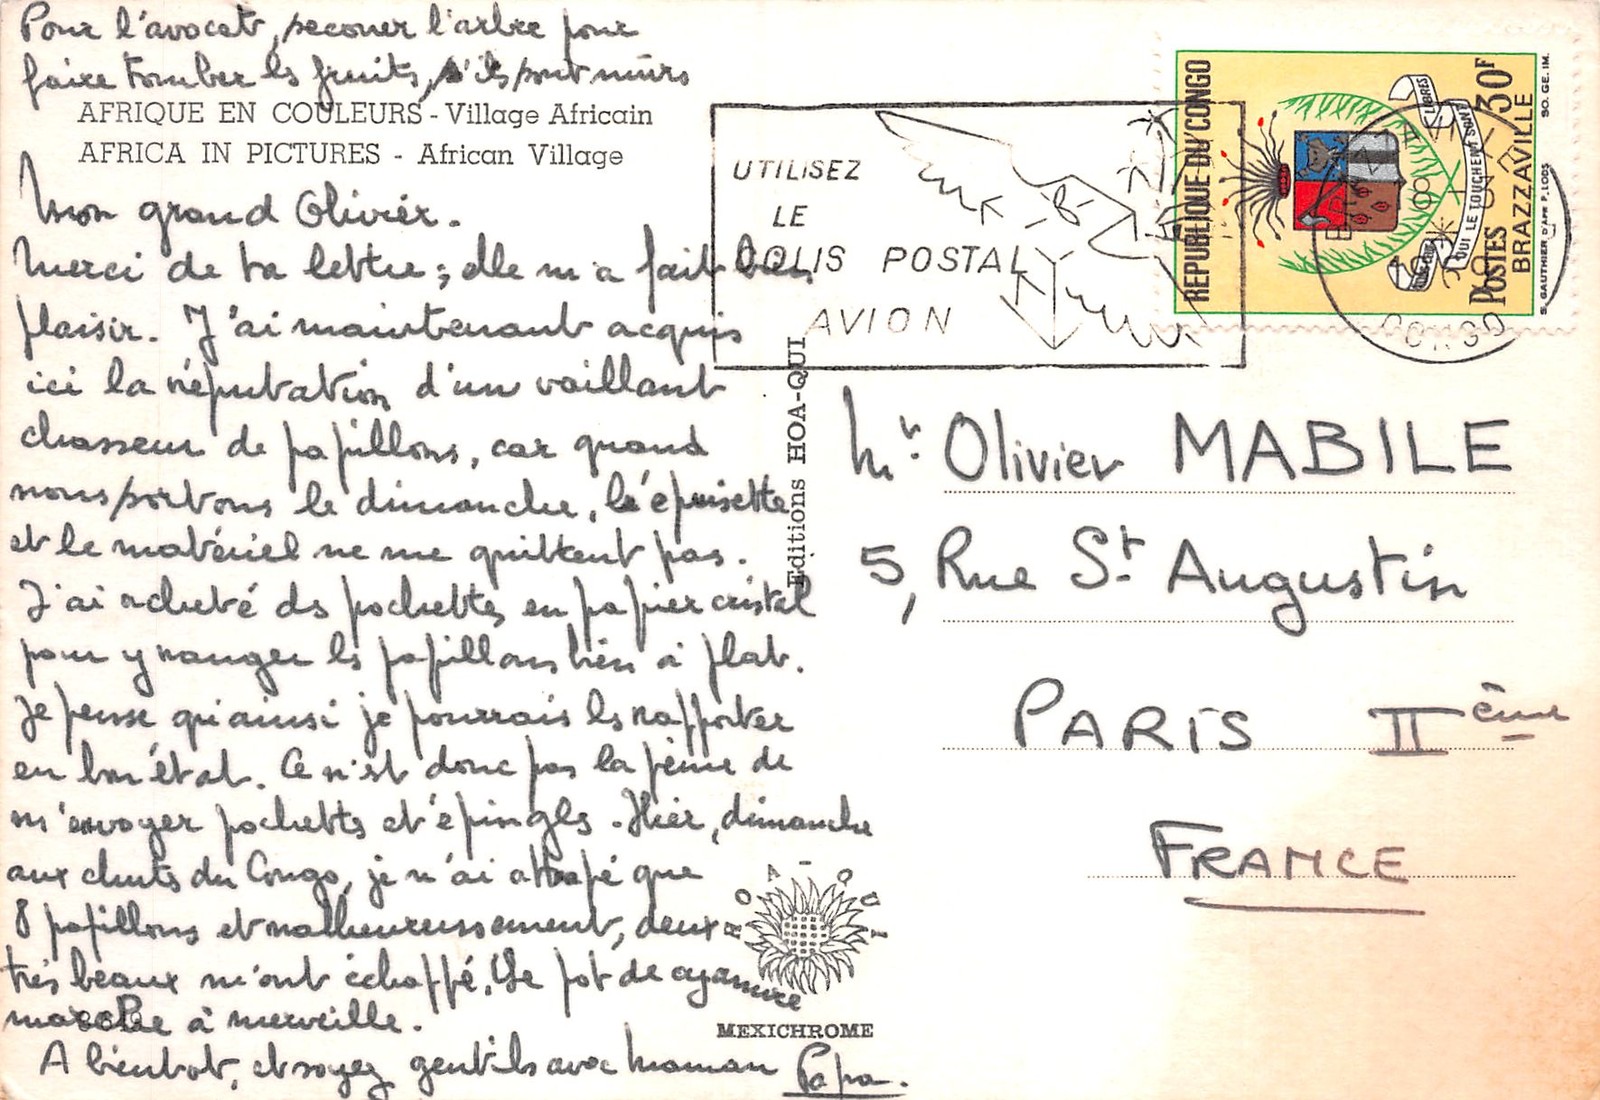 Pour l'avocat, secouer l'arbre pour
faire tomber les fruits, s'ils sont mûrs
AFRIQUE EN COULEURS - Village Africain
AFRICA IN PICTURES - African Village
Mon grand Olivier.
Merci de ta lettre ; elle m'a fait bien
plaisir. J'ai maintenant acquis
ici la réputation d'un vaillant
chasseur de papillons, car quand
nous sortons le dimanche, l'épuisette
et le matériel ne me quittent pas.
J'ai acheté des pochettes en papier cristal
pour y ranger les papillons bien à plat.
Je pense qu'ainsi je pourrais les rapporter
en bon état. Ce n'est donc pas la peine de
m'envoyer pochettes et épingles. Hier, dimanche
aux chutes du Congo, je n'ai attrapé que
8 papillons et malheureusement, deux
très beaux m'ont échappé. Le pot de cyanure
marche à merveille.
A bientôt, et soyez gentils avec maman Papa.
Editions HOA-QUI
HOA-QUI
MEXICHROME
UTILISEZ
LE
COLIS POSTAL
AVION
REPUBLIQUE DU CONGO
POSTES 30F
BRAZZAVILLE
QUI LE TOUCHENT SONT
LIBRES
S. GAUTHIER D'APR P. LODS
SO. GE. IM.
CONGO
Mr. Olivier MABILE
5, Rue St. Augustin
PARIS IIème
FRANCE